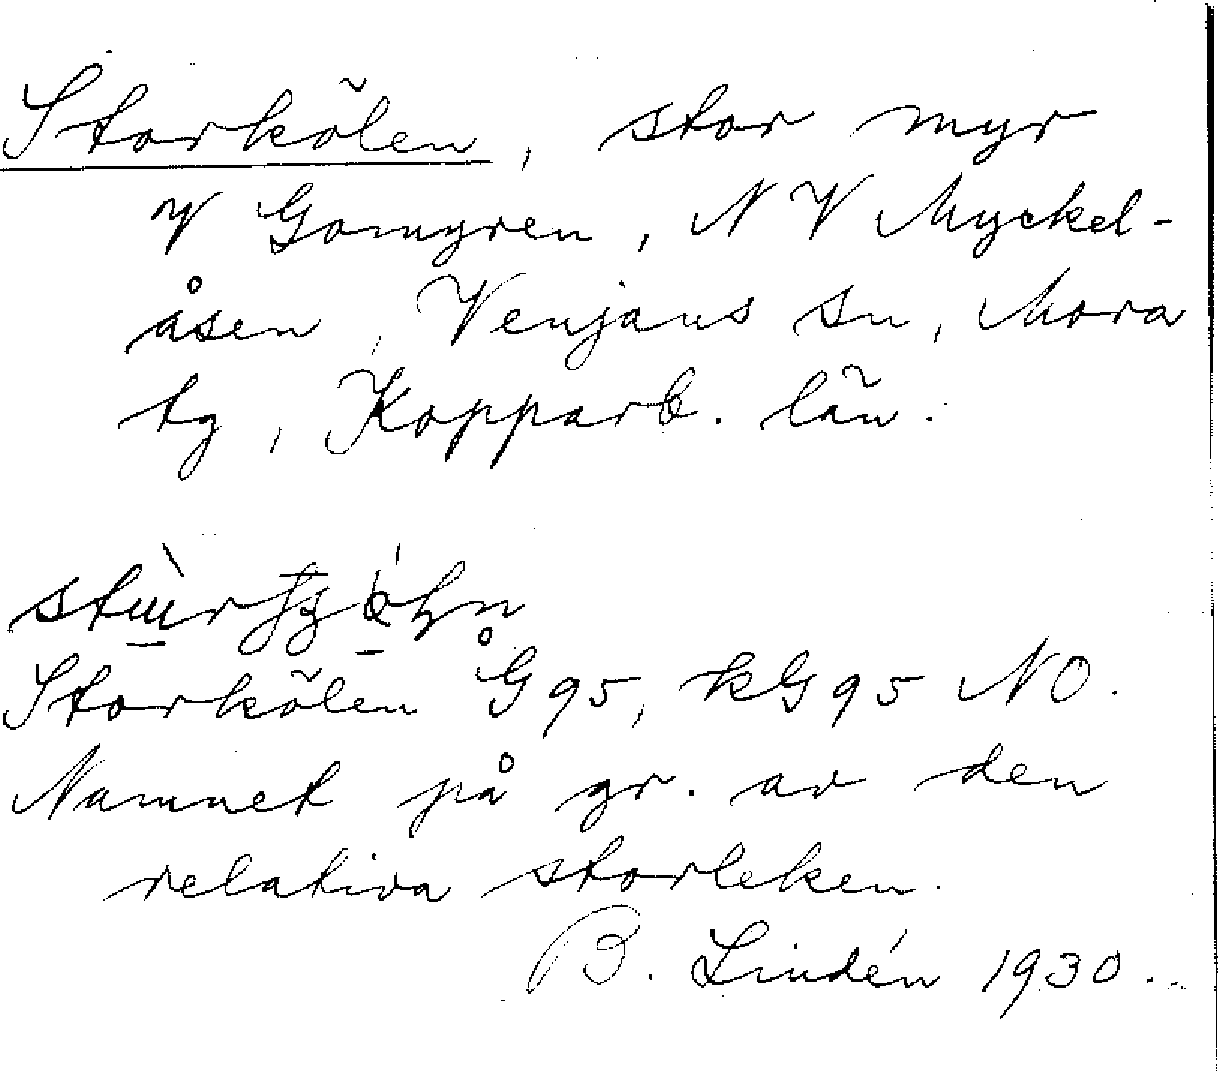 Storkölen, stor myr
V Gomyren, NV Myckel-
åsen, Venjans sn, Mora
tg, Kopparb. län.
Storkölen G95, kG95 NO.
Namnet på gr. av den
relativa storleken.
B. Lindén 1930.